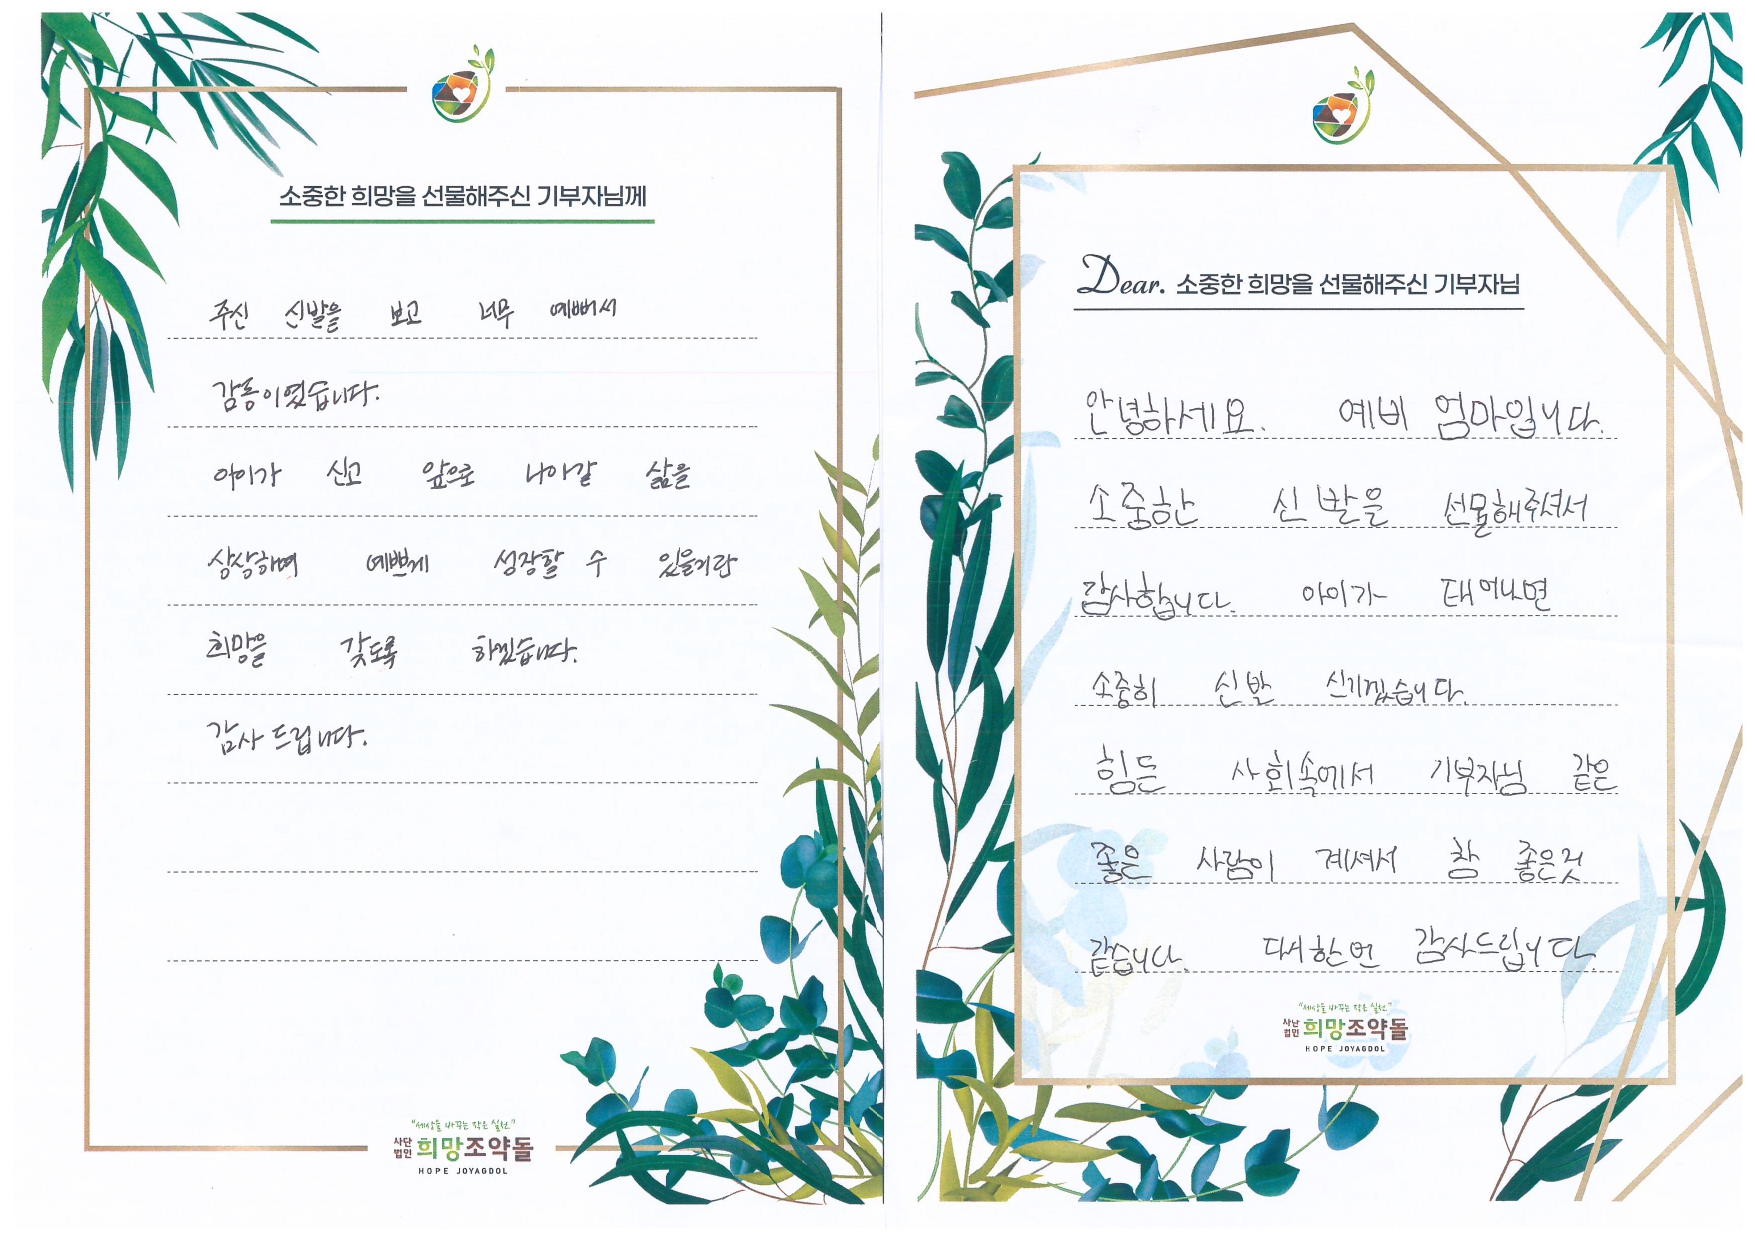 소중한 희망을 선물해주신 기부자님께
주신 신발을 보고 너무 예뻐서
감동이였습니다.
아이가 신고 앞으로 나아갈 삶을
상상하며 예쁘게 성장할 수 있을거란
희망을 갖도록 하겠습니다.
감사 드립니다.
"세상을 바꾸는 작은 실천"
사단법인 희망조약돌
HOPE JOYAGDOL
Dear. 소중한 희망을 선물해주신 기부자님
안녕하세요. 예비 엄마입니다.
소중한 신발을 선물해주셔서
감사합니다. 아이가 태어나면
소중히 신발 신기겠습니다.
힘든 사회속에서 기부자님 같은
좋은 사람이 계셔서 참 좋은것
같습니다. 다시한번 감사드립니다.
"세상을 바꾸는 작은 실천"
사단법인 희망조약돌
HOPE JOYAGDOL